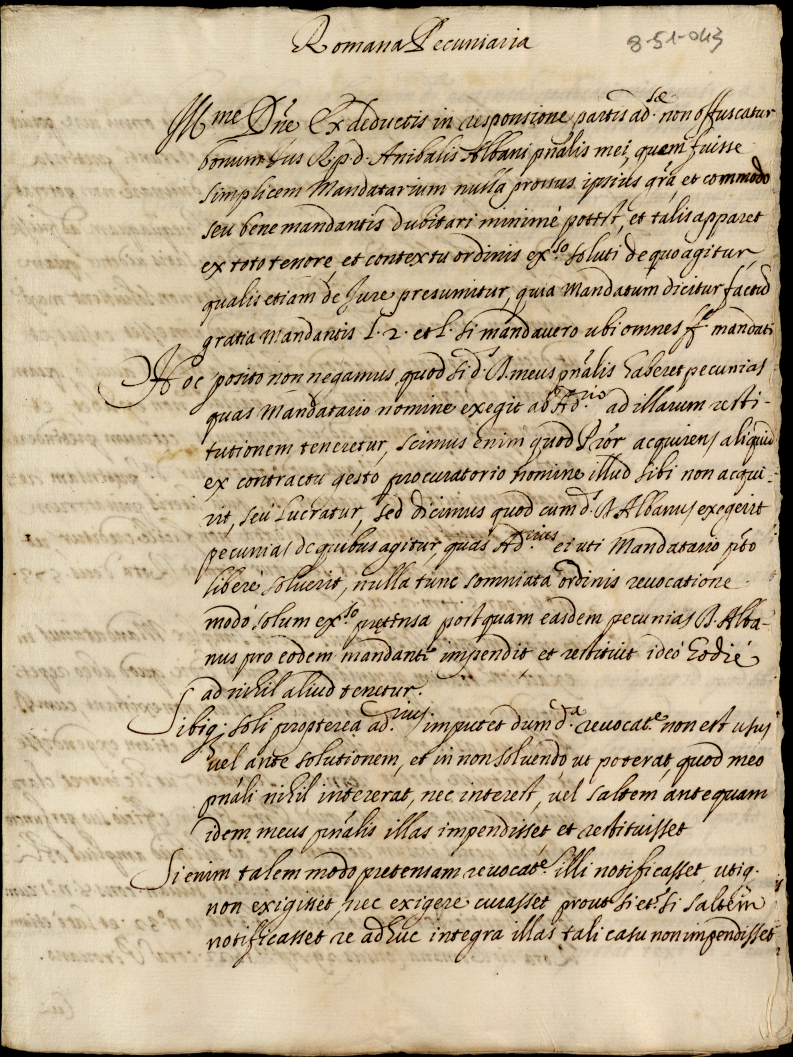 Romana Pecuniaria
8-51-043
Ill.me Dñe Ex deductis in responsione partis ad.sæ non offuscatur
bonum Jus R.p.d. Anibalis Albani pñalis mei, quem fuisse
simplicem Mandatarium nulla prorsus ipsius gr̃a, et commodo
seu bene mandantis dubitari minimé potest, et talis apparet
ex toto tenore, et contextu ordinis ex.so soluti de quo agitur
qualis etiam de Jure presumitur, quia Mandatum dicitur factũ
gratia Mandantis l. 2. et l. si mandavero ubi omnes ff. mandati
Hoc posito non negamus, quod si d.s R. meus pñalis haberet pecunias
quas Mandatario nomine exegit ab Ad.rio ad illarum resti-
tutionem teneretur, scimus enim quod Pr̃or acquirens aliquid
ex contractu gesto procuratorio nomine illud sibi non acqui-
rit, seu Lucratur, sed dicimus quod cum d.s R. Albanus exegerit
pecunias de quibus agitur, quas Ad.rius ei uti Mandatario p̃to
liberé solverit, nulla tunc somniata ordinis revocatione
modó solum ex.so pretensa postquam easdem pecunias R. Alba-
nus pro eodem mandante impendit et restituit ideó hodié
ad nihil aliud tenetur.
Sibiq; soli propterea ad.rius imputet dum d.a revocat.e non est usus
vel ante solutionem, et in non solvendo ut poterat quod meo
pñali nihil intererat, nec interest, vel saltem antequam
idem meus pñalis illas impendisset et restituisset
Si enim talem modo pretensam revocat.e illi notificasset, utiq.
non exigisset, nec exigere curasset prout si et. si saltem
notificasset re adhuc integra illas tali casu non impendisset